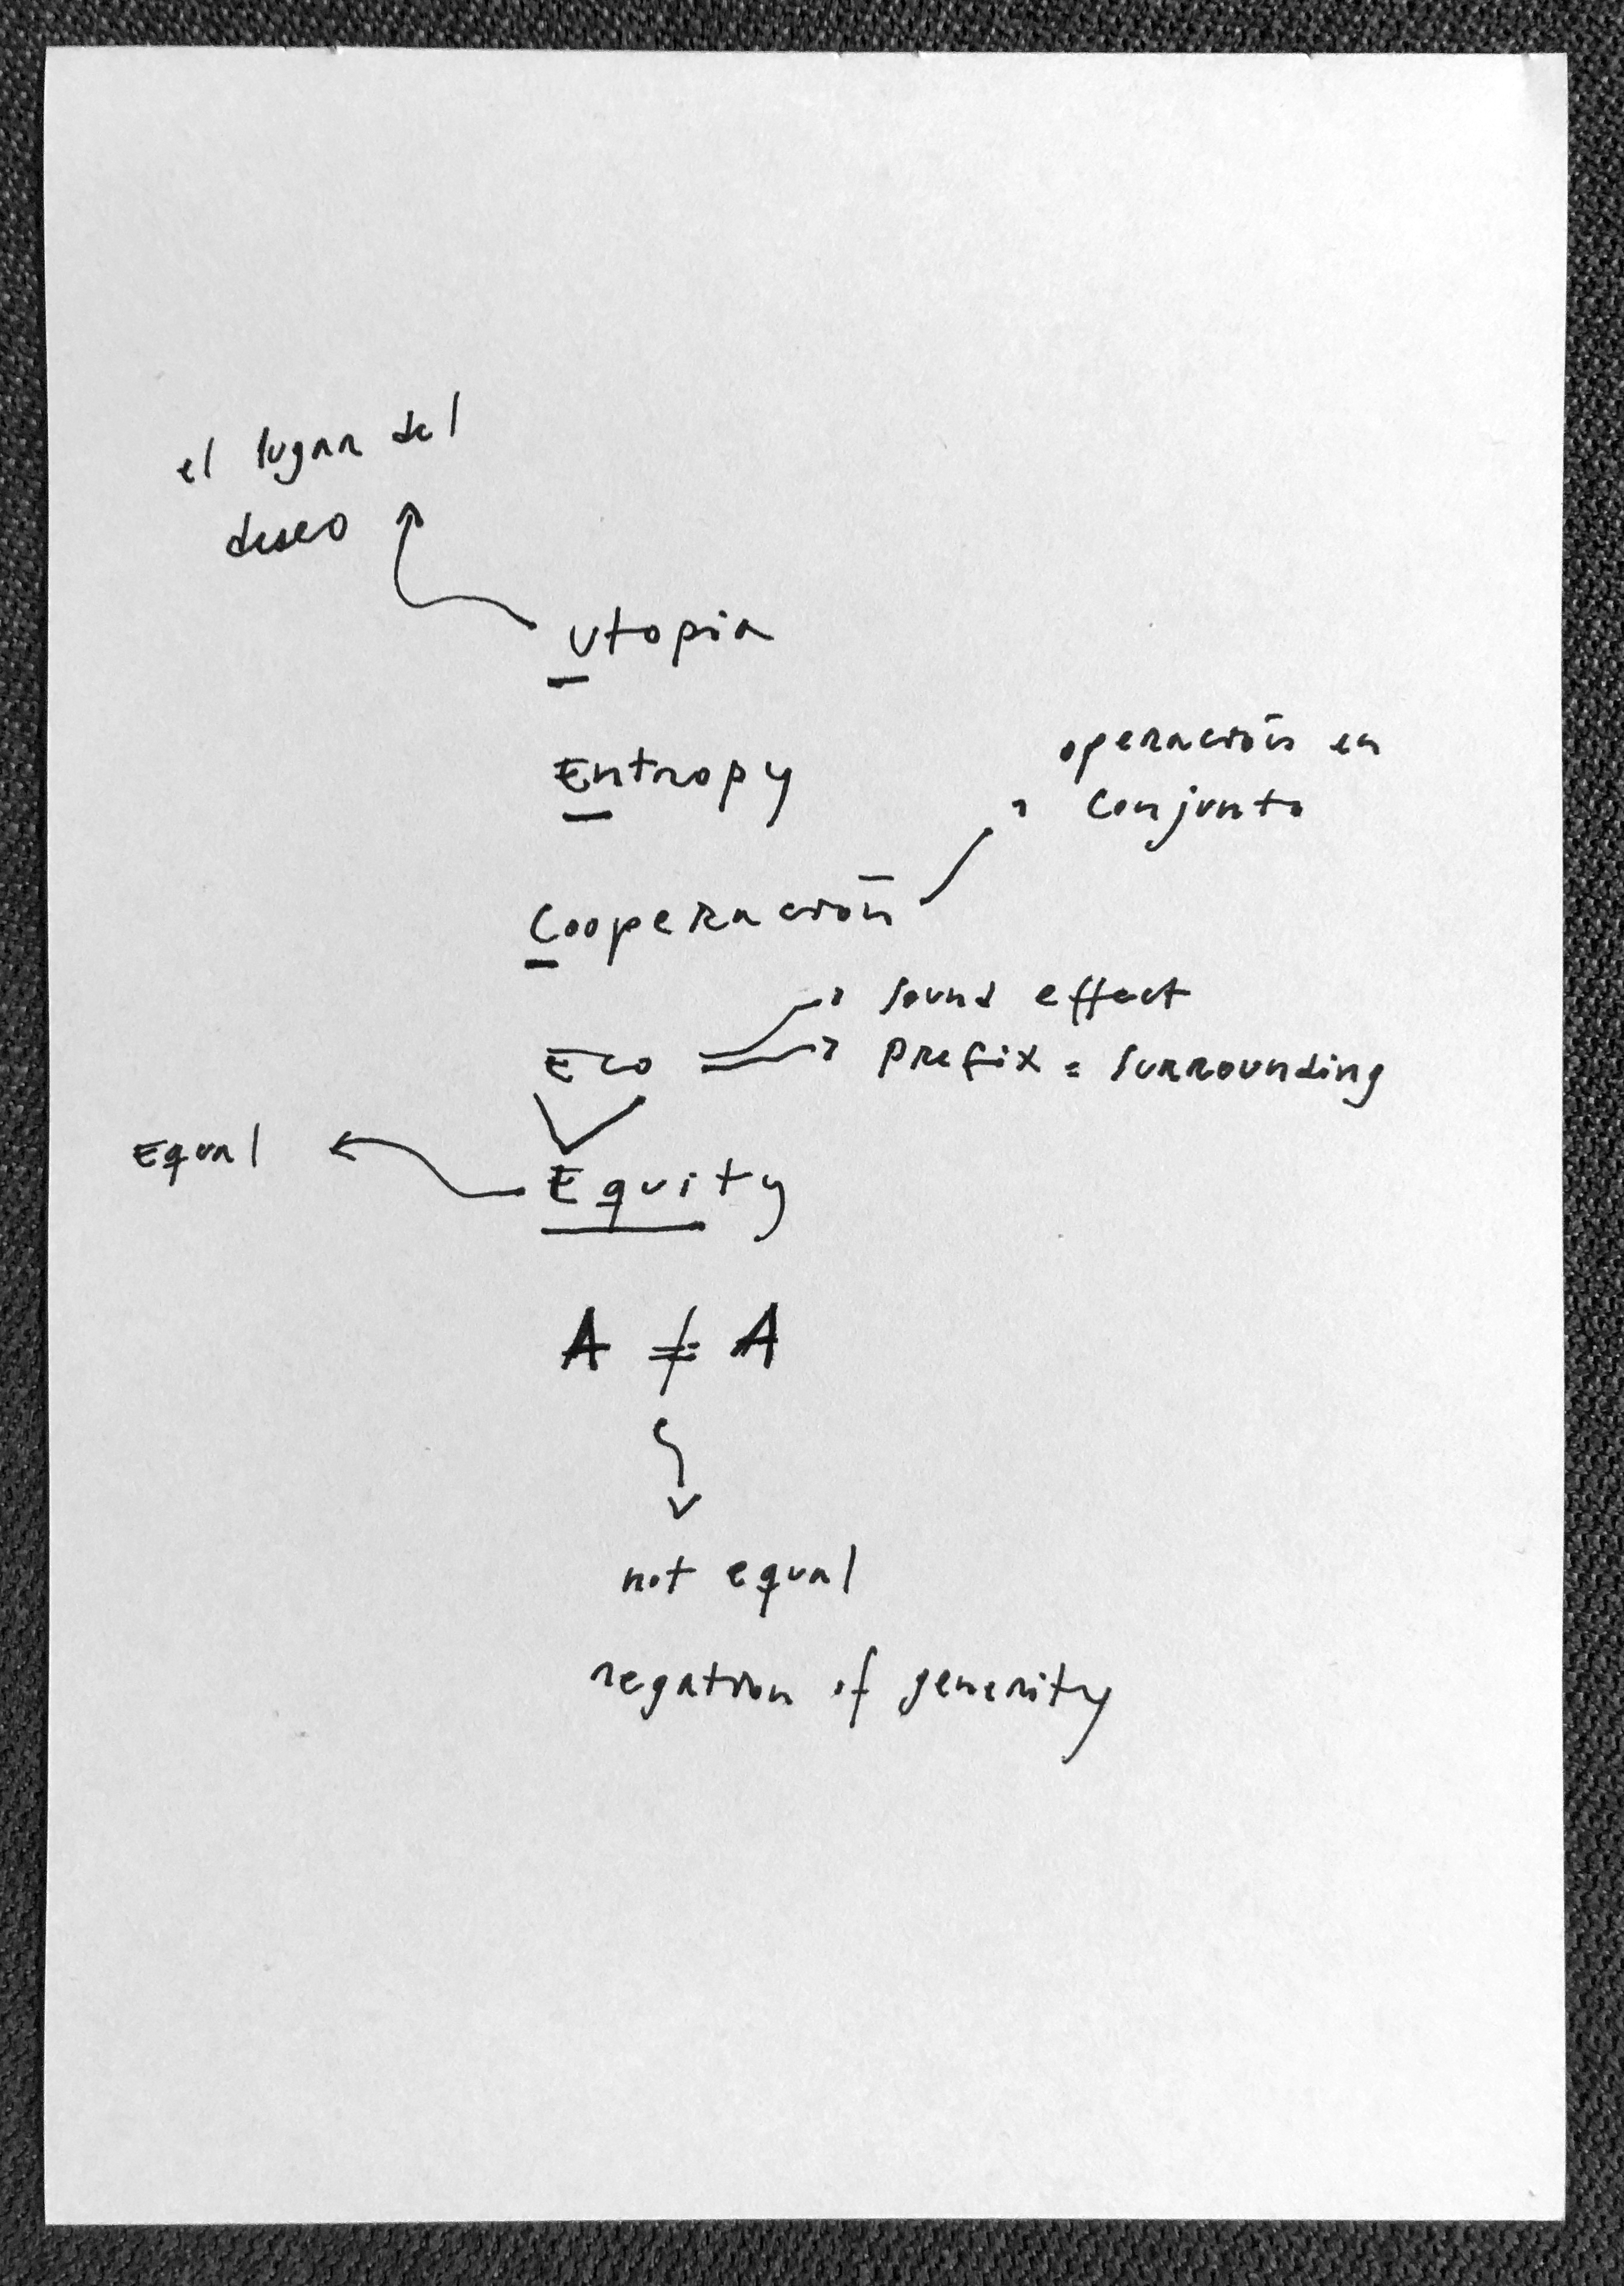 el lugar del
deseo
Utopia
Entropy
operación en
conjunto
Cooperación
Eco
sound effect
prefix = surrounding
Equal
Equity
A ≠ A
not equal
negation of generity